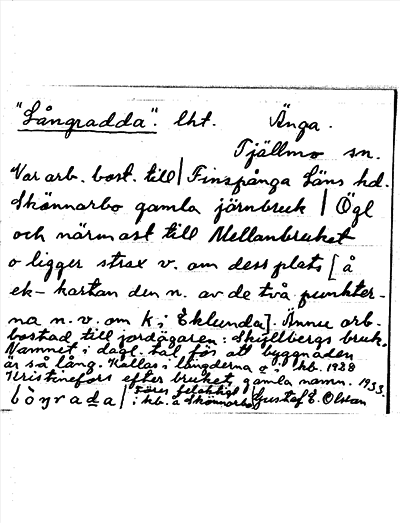 "Långradda". lht. Änga.
Tjällmo sn.
Var arb. bost. till | Finspånga Läns hd.
Skönnarbo gamla järnbruk | Ögl
och närmast till Mellanbruket
o ligger strax v. om dess plats [å
ek-kartan den n. av de två punkter-
na n.v. om K i Eklunda]. Ännu arb-
bostad till jordägaren: Skyllbergs bruk.
Namnet i dagl. tal för att byggnaden
är så lång. Kallas i längderna o. i kb. 1928
Kristinefors efter brukets gamla namn. 1933.
Föres felaktigt
i kb. å Skönnarbo | Gustaf E. Olsson